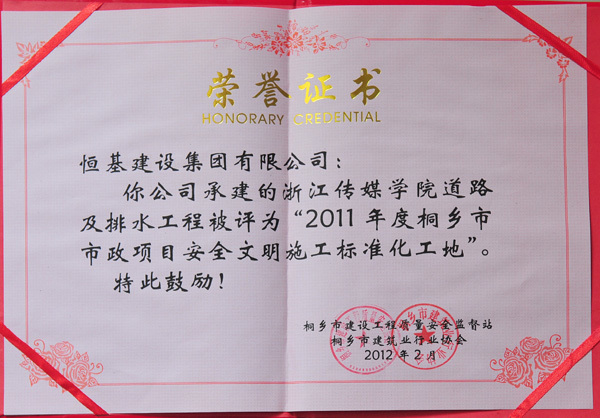 荣誉证书
HONORARY CREDENTIAL
恒基建设集团有限公司：
你公司承建的浙江传媒学院道路
及排水工程被评为“2011年度桐乡市
市政项目安全文明施工标准化工地”。
特此鼓励！
桐乡市建设工程质量安全监督站
桐乡市建筑业行业协会
2012年2月